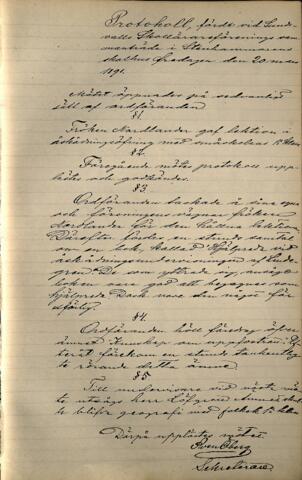 Protokoll, fördt vid Sund-
svalls Skollärareförenings sam-
manträde i Stenhammarens
skolhus fredagen den 20 mars
1891.
Mötet öppnades på sedvanligt
sätt af ordföranden
§1.
Fröken Nordlander gaf lektion i
åskådningsöfning med småskolans 1sta klass
§2.
Föregående mötes protokoll upp-
lästes och godkändes.
§3.
Ordföranden tackade i sine egne
och föreningens vägnar fröken
Nordlander för den hållna lektionen.
Derefter fördes en stunds samtal
om en bok, kallad Hjälpreda vid
åskådningsundervisningen af Lind-
gren. De som yttrade sig, ansågo
boken vara god att begagnas som
hjälpreda. Dock vore den något för
utförlig.
§4.
Ordföranden höll föredrag öfver
ämnet Kunskap om uppfostran. Ef-
teråt förekom en stunds tankeutbyte
rörande detta ämne.
§5.
Till undervisare vid nästa mö-
te utsågs herr Löfgren. Ämnet skulle
blifva geografi med folksk. 1sta klass
Derpå upplöstes mötet.
Sven Öberg
Sekreterare.